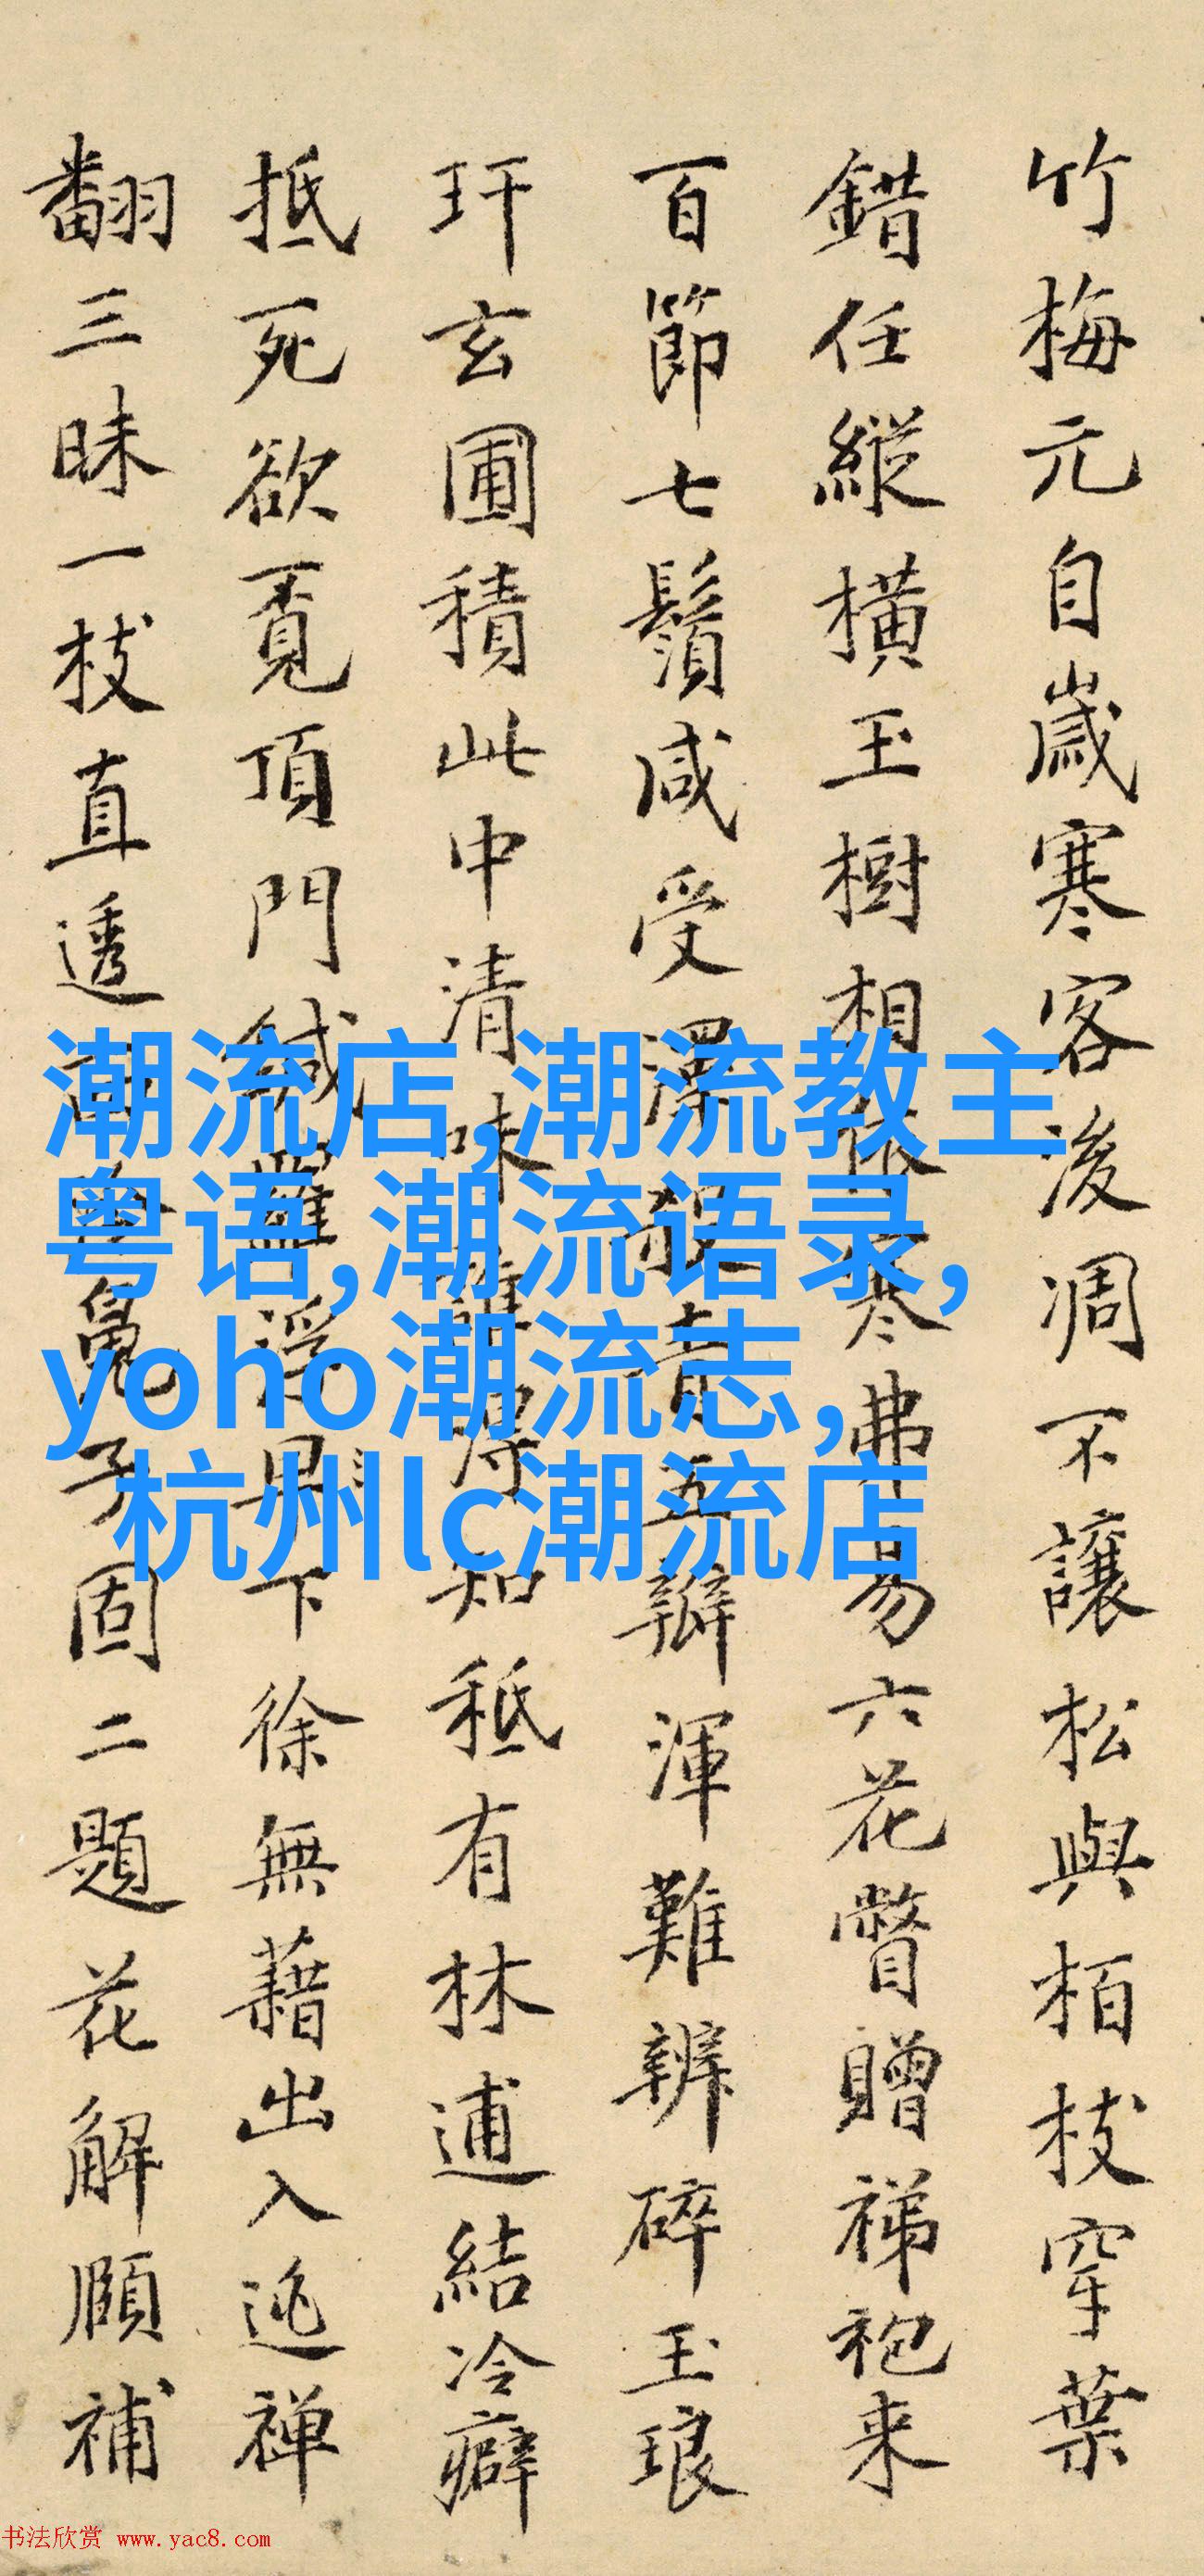 竹梅元自歲寒客後凋不讓松與栢枝穿葉
錯任縱橫玉樹相依寒弗易六花瞥贈祶袍来
百節七鬚咸受澤
五辦渾難辨碎玉琅
玕玄圃積此中清味誰得知秪有林逋結冷癖
抵死欲覔頂門鍼羅浮
下徐無藉出入逃禅
翻三昧一枝直透
子固二題花解頤補
潮流店,潮流教主
粤语,潮流语录,
yoho潮流志,
杭州lc潮流店
书法欣赏 www.yac8.com